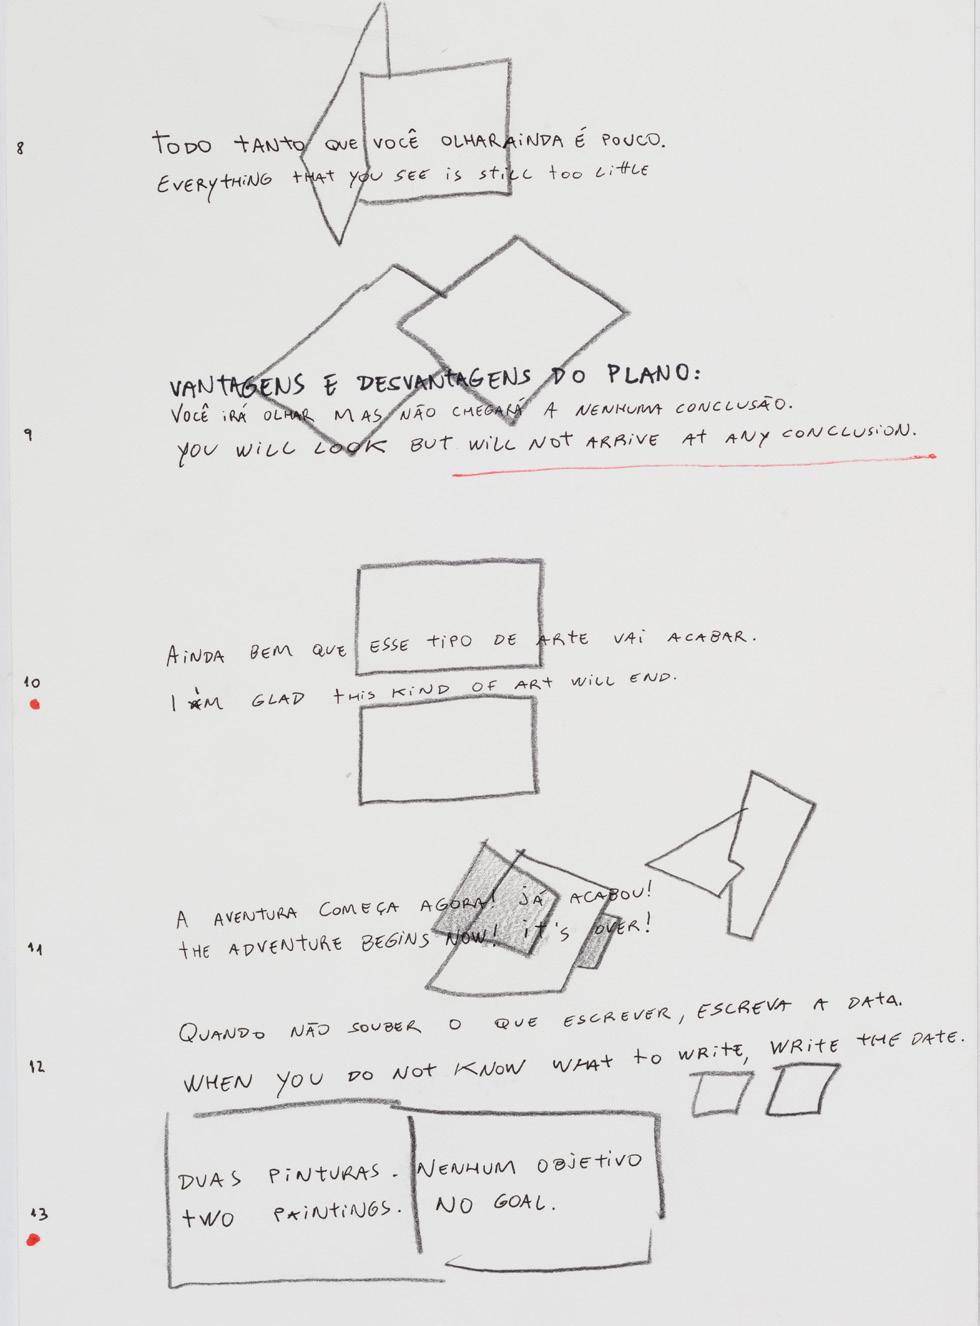 8
TODO TANTO QUE VOCÊ OLHAR AINDA É POUCO.
EVERYTHING THAT YOU SEE IS STILL TOO LITTLE
VANTAGENS E DESVANTAGENS DO PLANO:
VOCÊ IRÁ OLHAR MAS NÃO CHEGARÁ A NENHUMA CONCLUSÃO.
9
YOU WILL LOOK BUT WILL NOT ARRIVE AT ANY CONCLUSION.
AINDA BEM QUE ESSE TIPO DE ARTE VAI ACABAR.
10
I AM GLAD THIS KIND OF ART WILL END.
A AVENTURA COMEÇA AGORA! JÁ ACABOU!
11
THE ADVENTURE BEGINS NOW! IT'S OVER!
QUANDO NÃO SOUBER O QUE ESCREVER, ESCREVA A DATA.
12
WHEN YOU DO NOT KNOW WHAT TO WRITE, WRITE THE DATE.
DUAS PINTURAS. NENHUM OBJETIVO
13
TWO PAINTINGS. NO GOAL.